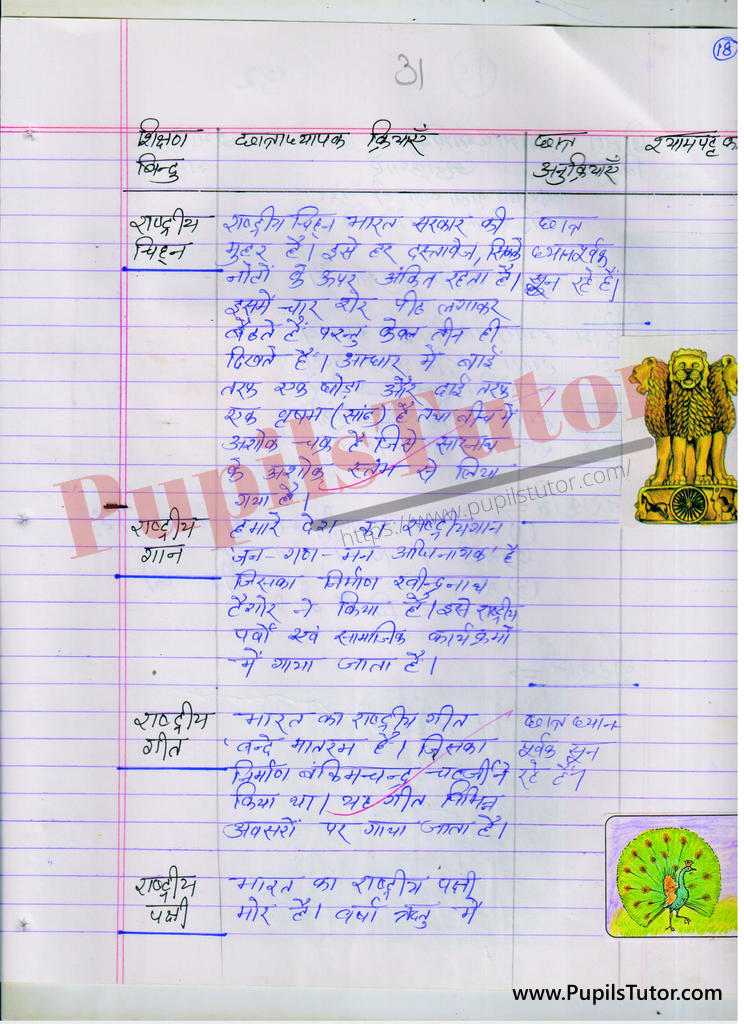 18
31
शिक्षण बिन्दु
छात्राध्यापक क्रियाएँ
छात्र अनुक्रियाएँ
श्यामपट्ट का
राष्ट्रीय चिह्न
राष्ट्रीय चिह्न भारत सरकार की
मुहर है। इसे हर दस्तावेज, सिक्के
नोटों के ऊपर अंकित रहता है।
इसमें चार शेर पीठ लगाकर
बैठते हैं परन्तु केवल तीन ही
दिखते है। आधार में बाईं
तरफ एक घोड़ा और दाईं तरफ
एक वृषभ (सांड) है तथा बीच में
अशोक चक्र है जिसे सारनाथ
के अशोक स्तंभ से लिया
गया है।
छात्र
ध्यानपूर्वक
सुन रहे हैं।
राष्ट्रीय गान
हमारे देश का राष्ट्रीयगान
'जन-गण-मन अधिनायक' है
जिसका निर्माण रवीन्द्रनाथ
टैगोर ने किया है। इसे राष्ट्रीय
पर्वों एवं सामाजिक कार्यक्रमों
में गाया जाता है।
राष्ट्रीय गीत
भारत का राष्ट्रीय गीत
'वन्दे मातरम है। जिसका
निर्माण बंकिमचन्द्र चटर्जी ने
किया था। यह गीत विभिन्न
अवसरों पर गाया जाता है।
छात्र ध्यान-
पूर्वक सुन
रहे हैं।
राष्ट्रीय पक्षी
भारत का राष्ट्रीय पक्षी
मोर है। वर्षा ऋतु में
PupilsTutor
https://www.pupilstutor.com/
www.PupilsTutor.com